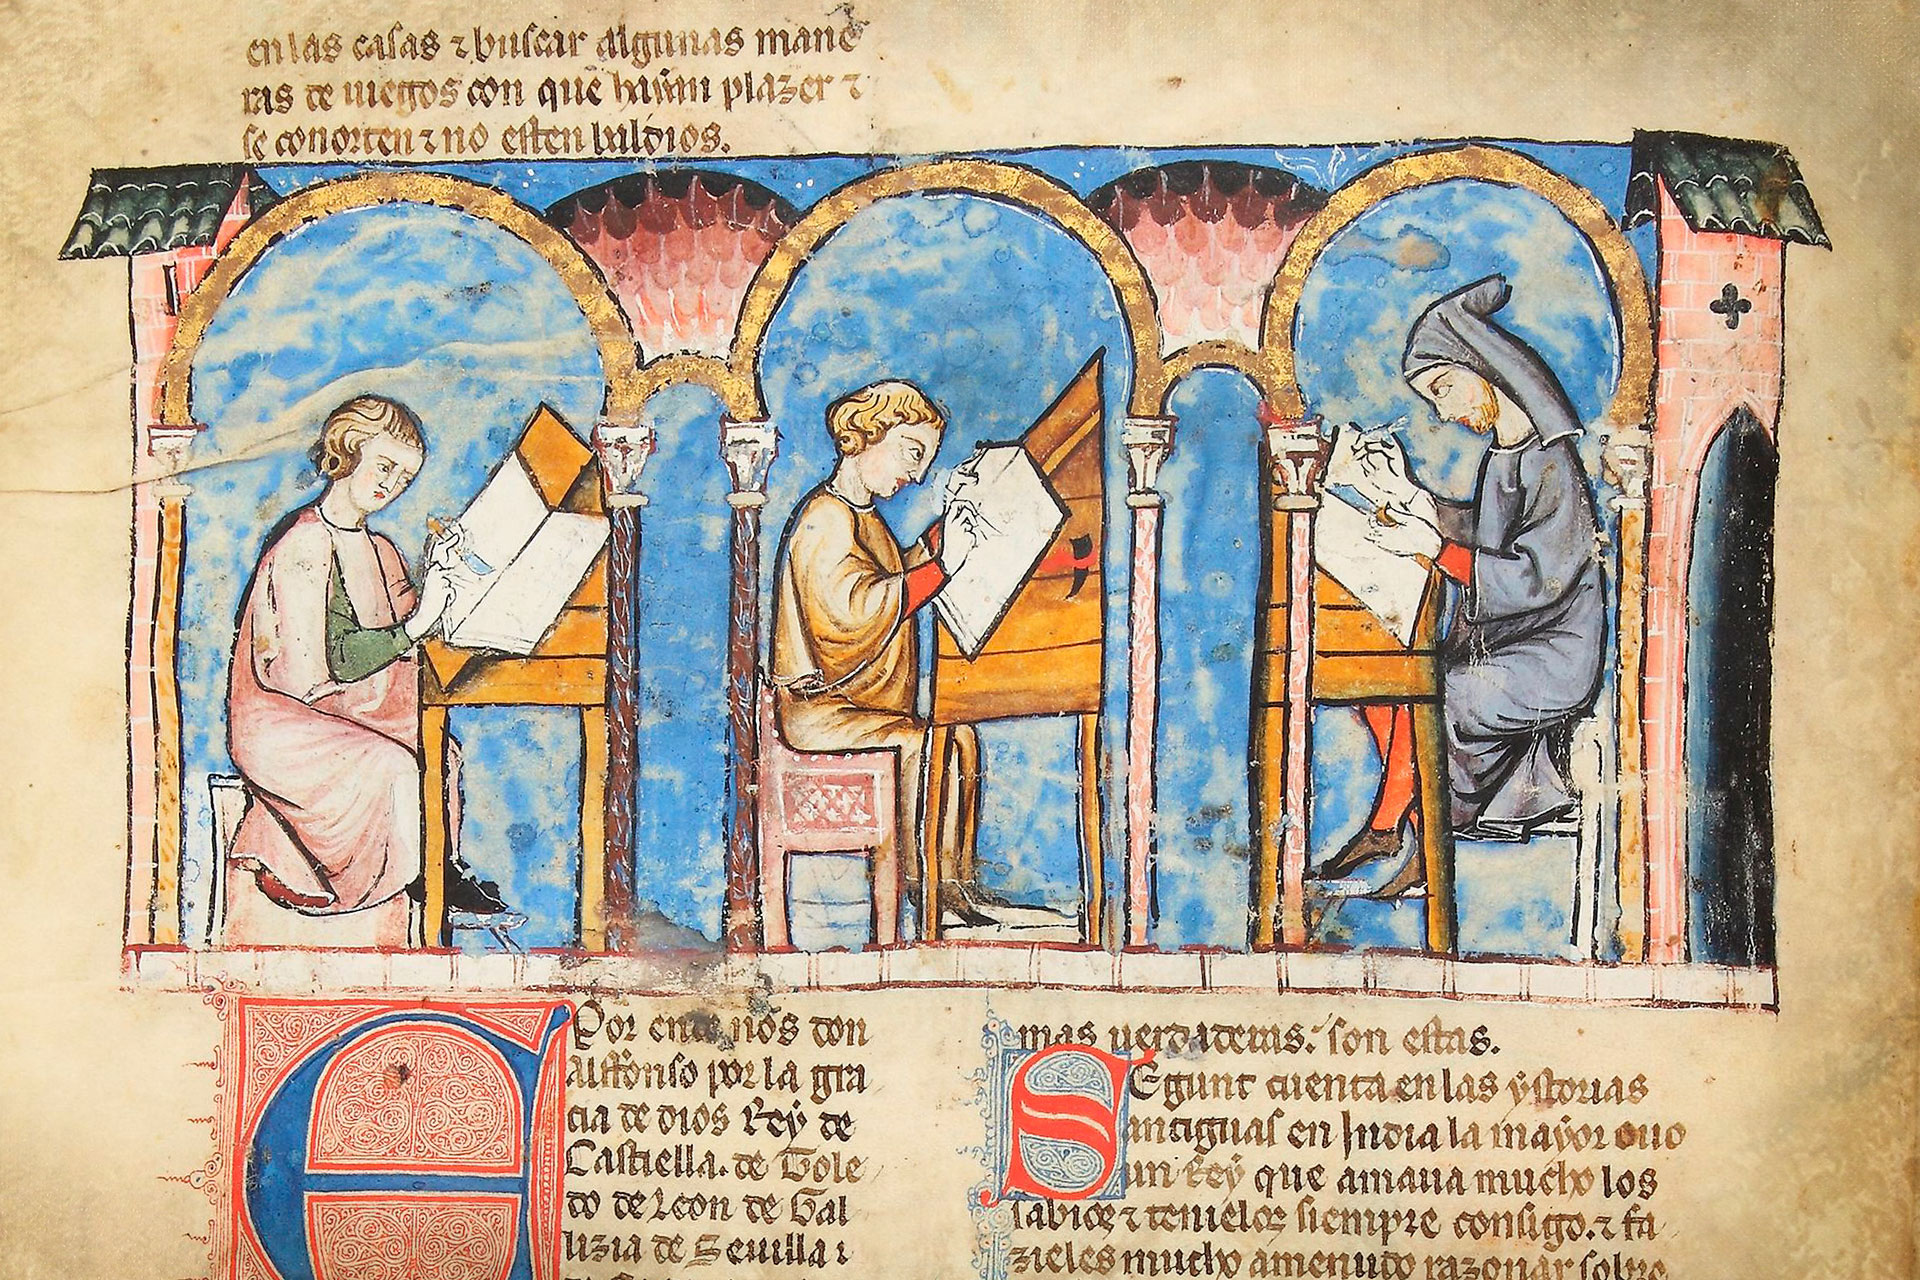 en las casas ⁊ buscar algunas mane
ras de iuegos con que hayan plazer ⁊
se conorten ⁊ no esten baldios.
Por ende nos don
Alffonso por la gra
cia de dios Rey de
Castiella. de Tole
do de Leon de Gal
lizia de Seuilla ⁊
mas uerdaderas: son estas.
Segunt cuenta en las ystorias
antiguas en India la mayor ouo
un Rey que amaua mucho los
sabios ⁊ tenielos siempre consigo. ⁊ fa
zieles mucho amenudo razonar sobre